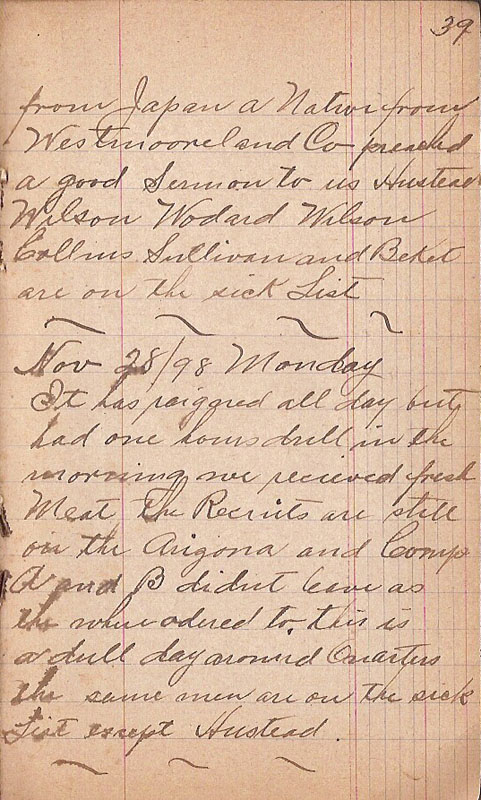 39
from Japan a Native from
Westmooreland Co preached
a good Sermon to us Hustead
Wilson Wodard Wilson
Collins Sullivan and Beket
are on the sick List
Nov 28/98 Monday
It has raigned all day but
had one hours drill in the
morning we recieved fresh
Meat the Recruits are still
on the Arizona and Comp
A and B didnt leave as
the where odered to. this is
a dull day around Quarters
the same men are on the sick
List except Hustead.